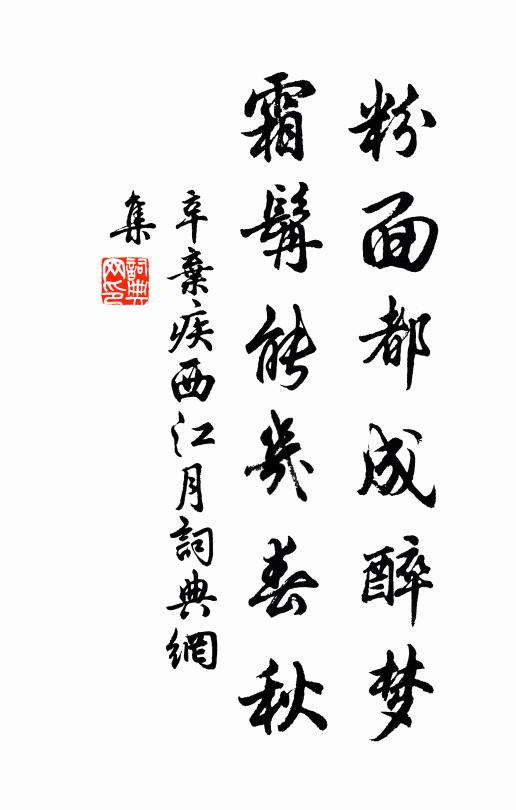 粉面都成醉梦
霜髯能几春秋
辛棄疾西江月詞典網
集
詞典
网印